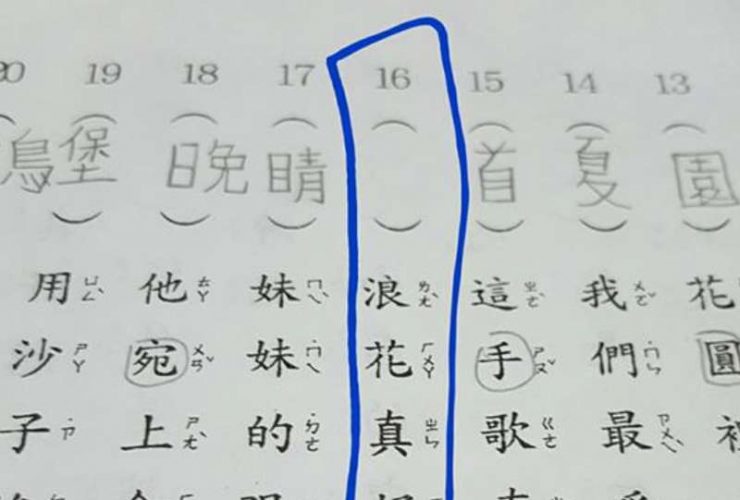 13（園）花圓
14（夏）我ㄨㄛˇ們˙ㄇㄣ最ㄗㄨㄟˋ
15（首）這ㄓㄜˋ手ㄕㄡˇ歌ㄍㄜ
16（ ）浪ㄌㄤˋ花ㄏㄨㄚ真ㄓㄣ
17（睛）妹ㄇㄟˋ妹˙ㄇㄟ的˙ㄉㄜ
18（晚）他ㄊㄚ宛ㄨㄢˇ上ㄕㄤˋ
19（堡）用ㄩㄥˋ沙ㄕㄚ子˙ㄗ